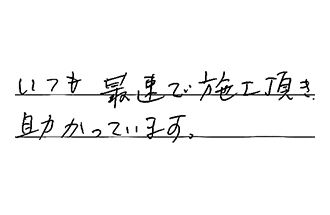 いつも最速で施工頂き
助かっています。